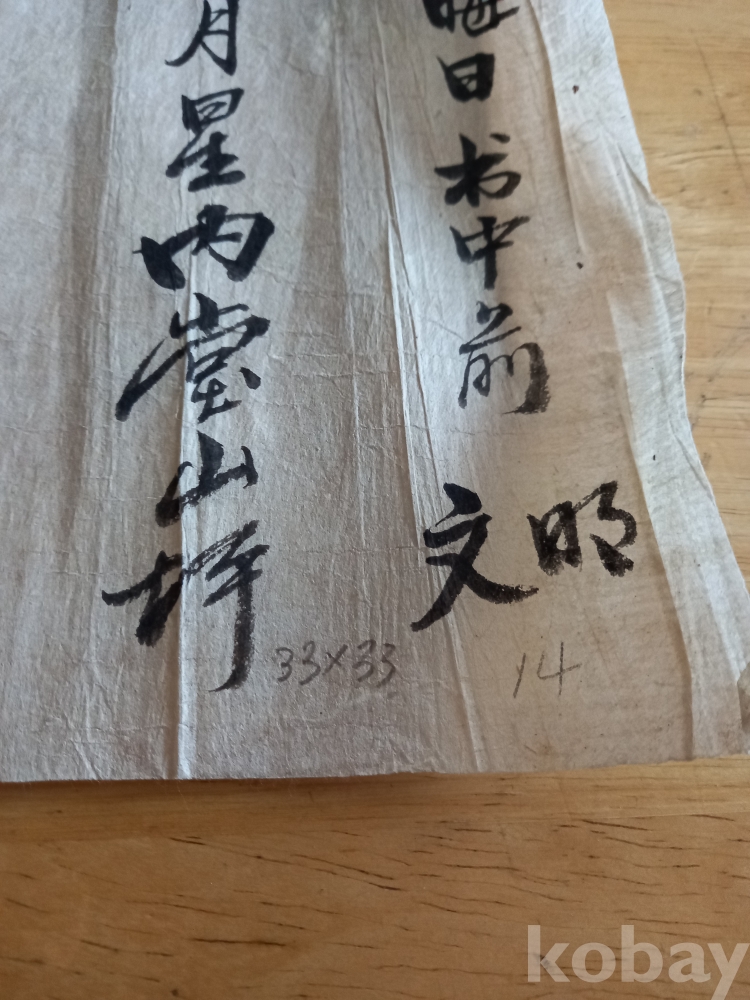 晦日书中前
明
文
月星内堂山坪
33x33
14
kobay